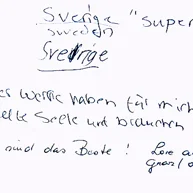 Sverige "super
sweden
Sverige
haben für mich
Seele und brauchen
sind das Beste! Love